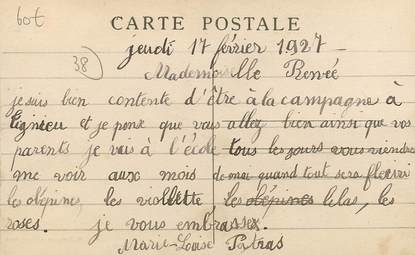 60t
CARTE POSTALE
jeudi 17 février 1927 -
38
Mademoiselle Renée
je suis bien contente d'être à la campagne à
et je pense que vous allez bien ainsi que vos
parents je vais à l'école tous les jours vous viendrez
me voir aux mois de mai quand tout sera fleuri
les obépines, les viollette les obépines lilas, les
roses. je vous embrasser.
Marie-Louise